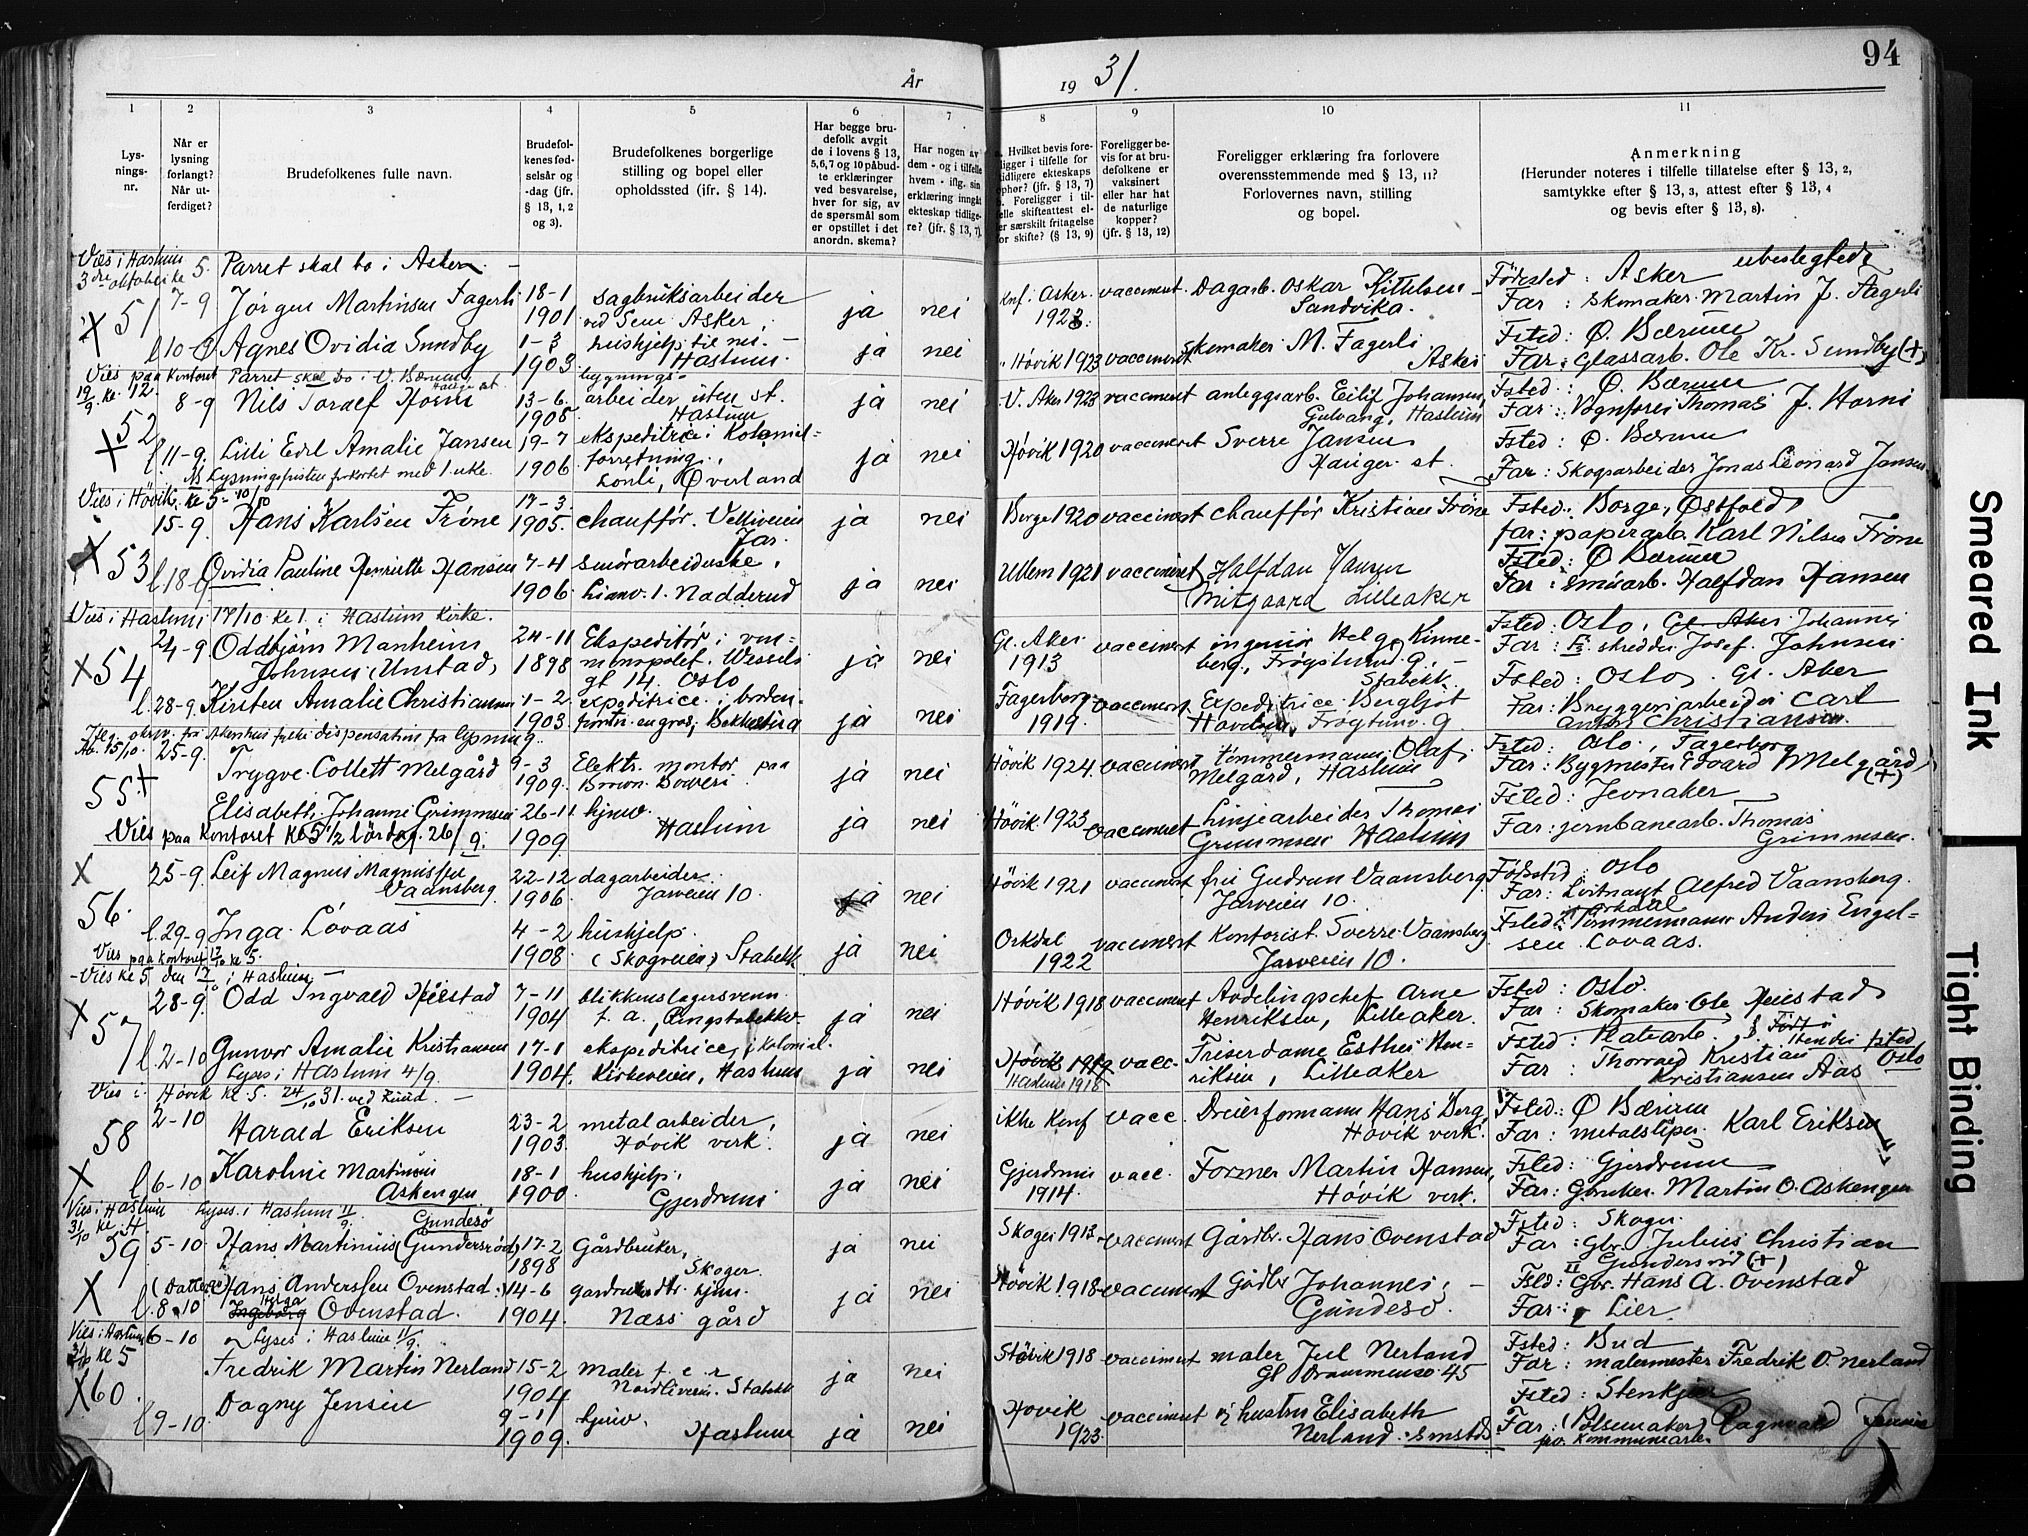 94
År 1931.
1 2 3 4 5 6 7 8 9 10 11
Lys-
nings-
nr.
Når er
lysning
forlangt?
Når ut-
ferdiget?
Brudefolkenes fulle navn.
Brudefol-
kenes fød-
selsår og
-dag (jfr.
§ 13, 1, 2
og 3).
Brudefolkenes borgerlige
stilling og bopel eller
opholdssted (ifr. § 14).
Har begge bru-
defolk avgit
de i lovens § 13,
5,6,7 og 10 påbud-
te erklæringer
ved besvarelse,
hver for sig, av
de spørsmål som
er opstillet i det
anordn. skema?
Har nogen av
dem - og i tilfelle
hvem - iflg. sin
erklæring inngåt
ekteskap tidlige-
re? (jfr. § 13, 7).
Hvilket bevis fore-
ligger i tilfelle for
tidligere ekteskaps
ophør? (jfr. § 13, 7)
Foreligger i til-
felle skifteattest el-
ler særskilt fritagelse
for skifte? (§ 13, 9)
Foreligger be-
vis for at bru-
defolkene er
vaksinert
eller har hat
de naturlige
kopper?
(jfr. § 13, 12)
Foreligger erklæring fra forlovere
overensstemmende med § 13, 11?
Forlovernes navn, stilling
og bopel.
Anmerkning
(Herunder noteres i tilfelle tillatelse efter § 13, 2,
samtykke efter § 13, 3, attest efter § 13, 4
og bevis efter § 13, 8).
Vies i Haslum
3dre oktober ke 5. Parret skal bo i Asker. -
51 7-9 Jørgen Martinsen Fagerli 18-1 1901 sagbruksarbeider ved Sem Asker, ja nei
Knf. Asker 1923. vaccinert Dagarb. Oskar Kittelsen - Sandvika. Fødested: Asker ubeslegtede
Far: skomaker Martin J. Fagerli
l 10-9 Agnes Ovidia Sundby 1-3 1903. hushjelp Haslum. ja nei
Høvik 1923 vaccinert skomaker M. Fagerli Asker Fsted: Ø. Bærum
Far: Glassarb. Ole Kr. Sundby (+)
Vies paa Kontoret Parret skal bo i V. Bærum
19/9. ke. 12.
52 8-9 Nils Toralf Horni 13-6. 1905. bygnings- arbeider uten st. Haslum ja nei
V. Aker 1923 vaccinert anleggsarb. Eilif Johansen, Haslum Fsted: Ø. Bærum
Far: Vognfører Thomas J. Horni
l 11-9. Lilli Edel Amalie Jansen 19-7 1906. ekspeditrice i Kolonial- forretning, Øverland ja nei
Høvik 1920 vaccineret Sverre Jansen Hauger st. Fsted: Ø. Bærum
Far: Skogsarbeider Jonas Leonard Jansen
Ns Lysningsfristen forkortet med 1. uke.
Vies i Høvik ke 5- 10/10
53 15-9. Hans Karlsen Frøne 17-3. 1905. chauffør. Jar. ja nei
Borge 1920 vaccinert chauffør Kristian Frøne Fsted. Borge, Østfold
far: papirarb. Karl Nilsen Frøne
l 18-9 Ovidia Pauline Henriette Hansen 7-4 1906. smørarbeiderske, Nadderud ja nei
Ullern 1921 vaccineret Halfdan Hansen Lilleaker Fsted: Ø Bærum
Far: Halfdan Hansen
Vies i Haslum 17/10. ke 1. i Haslum Kirke.
54 24-9 Oddbjørn Manheim Johnsen (Unstad) 24-11 1898 Ekspeditør i vin- monopolet. Wessels gt 14. Oslo ja nei
Gl. Aker 1913 vaccinert ingeniør Helge Kinne- berg, Stabekk. Fsted: Oslo, Gl. Aker Johannes
Far: skredder Josef Johnsen
l. 28-9. Kirsten Amalie Christiansen 1-2 1903 expeditrice i en gros, Bekkestua ja nei
Fagerborg 1919. vaccinert Expeditrice Bergljot Fsted: Oslo. Gl. Aker
Far: Bryggeriarbeider Carl Anton Christiansen.
Iflg. skriv. fra Akershus fylke dispensation fra lysning.
55 25-9. Trygve Collett Melgård 9-3 1909. Elektr. montør paa Brown Boveri ja nei
Høvik 1924. vaccinert tømmermann Olaf Melgård, Haslum Fsted: Oslo, Fagerborg
Far: Bygmester Edvard Melgård (+)
Elisabeth Johanne Grimmsen 26-11 1909. hjemv. Haslum ja nei
Høvik 1923 vaccinert Linjearbeider Thomas Grimmsen Haslum Fsted: Jevnaker
Far: jernbanearb. Thomas Grimmsen.
Vies paa kontoret ke 5 1/2 lørdag. 26/9.
56. 25-9. Leif Magnus Magnussen Vaansberg 22-12 1906. dagarbeider. Jarveien 10. ja nei
Høvik 1921 vaccinert fru Gudrun Vaansberg Jarveien 10. Fødested: Oslo
Far: Løitnant Alfred Vaansberg.
l. 29-9 Inga Løvaas 4-2 1908. hushjelp. (Skogveien) Stabekk ja nei
Orkdal 1922 vaccinert Kontorist. Sverre Vaansberg Jarveien 10. Fsted: Orkdal
Tømmermann Anders Engel- sen Lovaas.
Vies paa kontoret 17/10 ke 5.
Vies ke 5 den i Haslum -
57 28-9. Odd Ingvald Heiestad 7-11 1904 blikkenslagersvenn. ja nei
Høvik 1918 vaccinert Avdelingschef Arne Henriksen, Lilleaker. Fsted: Oslo.
Far: Skomaker Ole Heiestad
l 2-10 Gunvor Amalie Kristiansen 17-1 1904. ekspeditrice, i kolonial. Kirkeveien, Haslum ja nei
Haslum 1918 vacc. Friserdame Esther Hen- riksen, Lilleaker Fsted: Platearb. Født i Oslo
Far: Thorvald Kristian Kristiansen Aas
Lyses i Haslum 4/9.
Vies i Høvik ke 5. 24/10 31. ved Ruud. -
58 2-10 Harald Eriksen 23-2 1903. metalarbeider, Høvik verk. ja nei
ikke Konf vacc. Dreierformann Hans Berg, Høvik verk. Fsted: Ø Bærum
Far: metalsliper. Karl Eriksen
l 6-10 Karoline Martinius Askengen 18-1 1900. hushjelp, Gjerdrum ja nei
Gjerdrum 1914. vacc. Former Martin Hansen, Høvik verk. Fsted: Gjerdrum
Far: Gbruker. Martin O. Askengen
Vies i Haslum Lyses i Haslum 11/9.
31/10 ke 4.
59 5-10. Hans Martinius (Gundersrød) Gundesø 17-2 1898 Gårdbruker, Skoger. ja nei
Skoger 1913 vaccinert Gårdbr. Hans Ovenstad Fsted: Skoger.
Far: Gbr. Julius Christian (+)
l. 8-10 (Datter av Hans Anderssen Ovenstad.) Ingeborg Helga Ovenstad. 14-6 1904. hjem. Næss gård ja nei
Høvik 1918 vaccinert Gårdbr Johannes, - Gundesø. Gbr. Hans A. Ovenstad
Far: Lier.
Vies i Haslum Lyses i Haslum 11/9.
ke 5
60. 6-10 Fredrik Martin Nerland 15-2 1904. maler Nordliveien. Stabekk ja nei
1918 vaccinert maler Juel Nerland Gl Drammensv 45 Fsted: Bud
Far: malermester Fredrik O. Nerland
l 9-10. Dagny Jensen 9-11 1909. hjemv. Haslum ja nei
Høvik 1923. vaccinert hustru Elisabeth Nerland. Fsted: Stenkjær
Far: (Pølsemaker) Ragnvald Jensen
Kommunearb.
Smeared Ink
Tight Binding